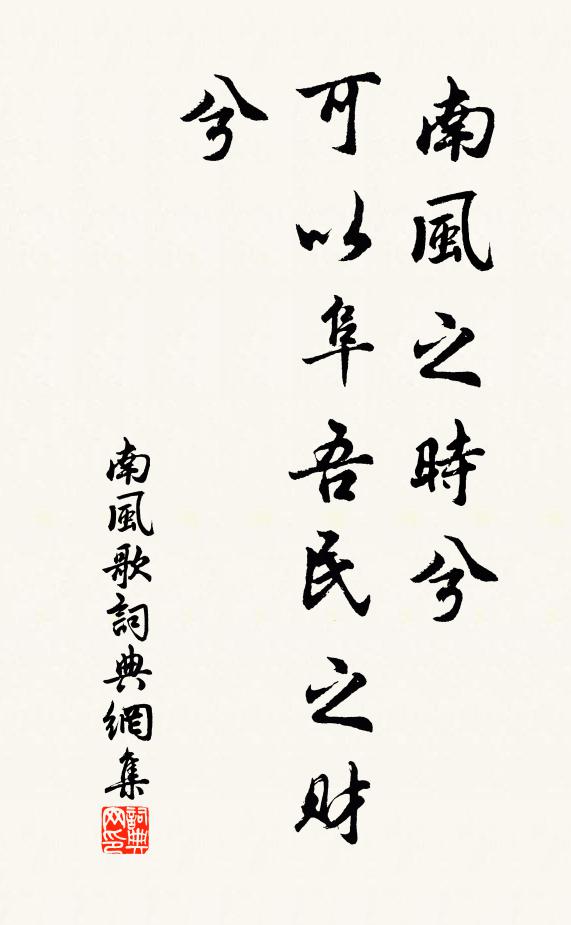 南風之時兮
可以阜吾民之財
兮
南風歌詞典網集
詞典
网印